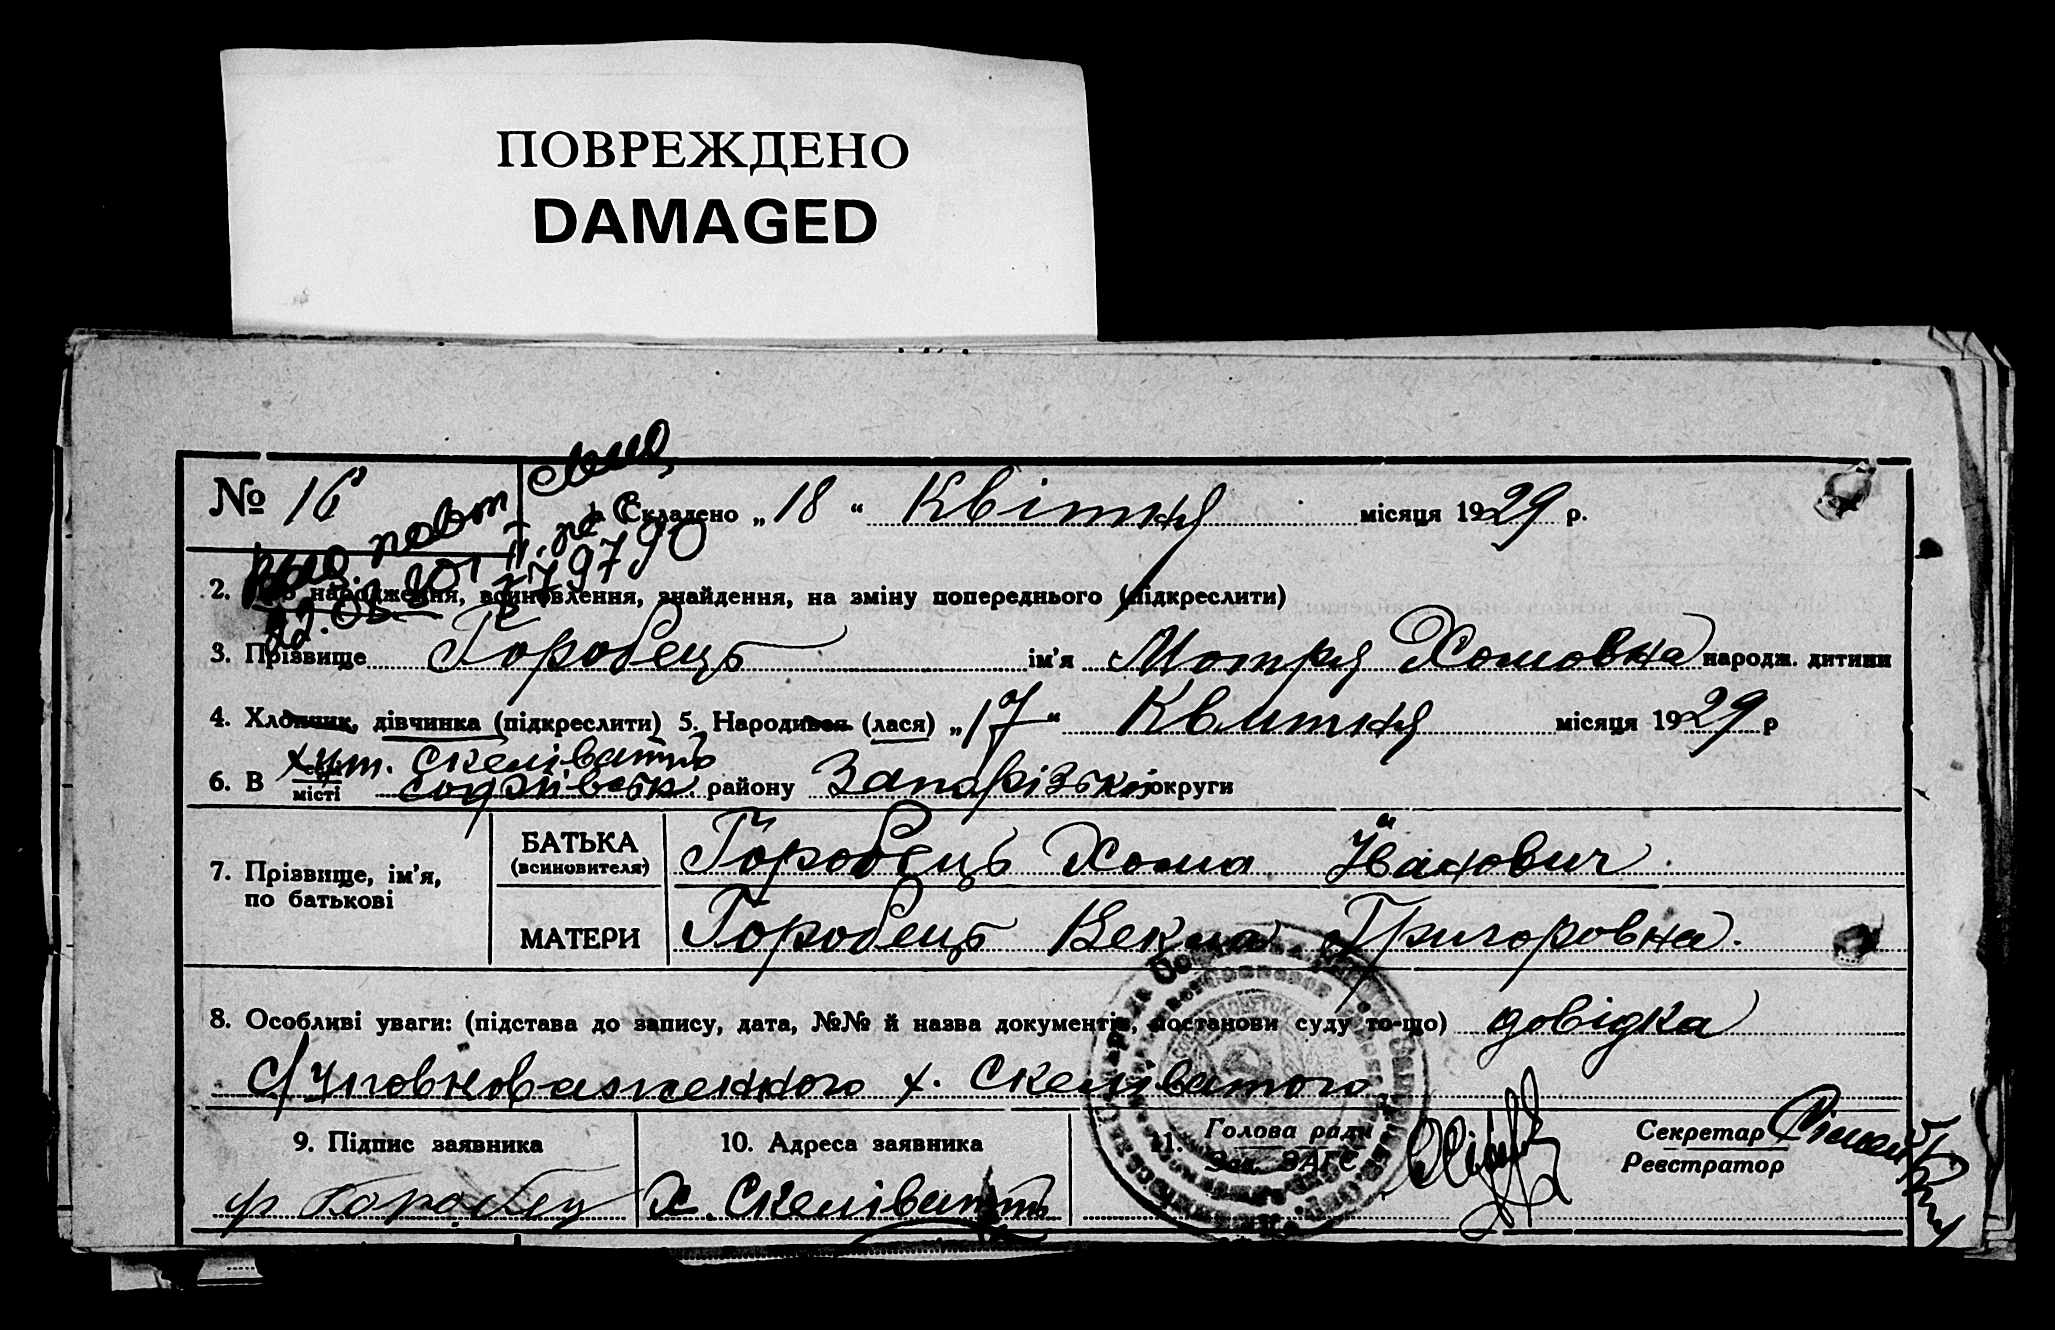 ПОВРЕЖДЕНО
DAMAGED
№ 16
1. Складено „18“ Квітня місяця 1929 р.
2. Про народження, всиновлення, знайдення, на зміну попереднього (підкреслити)
3. Прізвище Горобець ім'я Мотря Хомовна народж. дитини
4. Хлопчик, дівчинка (підкреслити) 5. Народився (лася) „17“ Квитня місяця 1929 р
хут. Скеліватъ
6. В селі місті району Запорізької округи
7. Прізвище, ім'я, по батькові
БАТЬКА (всиновителя) Горобець Хома Іванович
МАТЕРИ Горобець Векла Григоровна.
8. Особливі уваги: (підстава до запису, дата, №№ й назва документів, постанови суду то-що) довідка
с/уповноваженного х. Скеліватого
9. Підпис заявника 10. Адреса заявника 11. Голова ради Зав. ЗАГС Секретар Реєстратор
Горобец Х. Скеліватъ